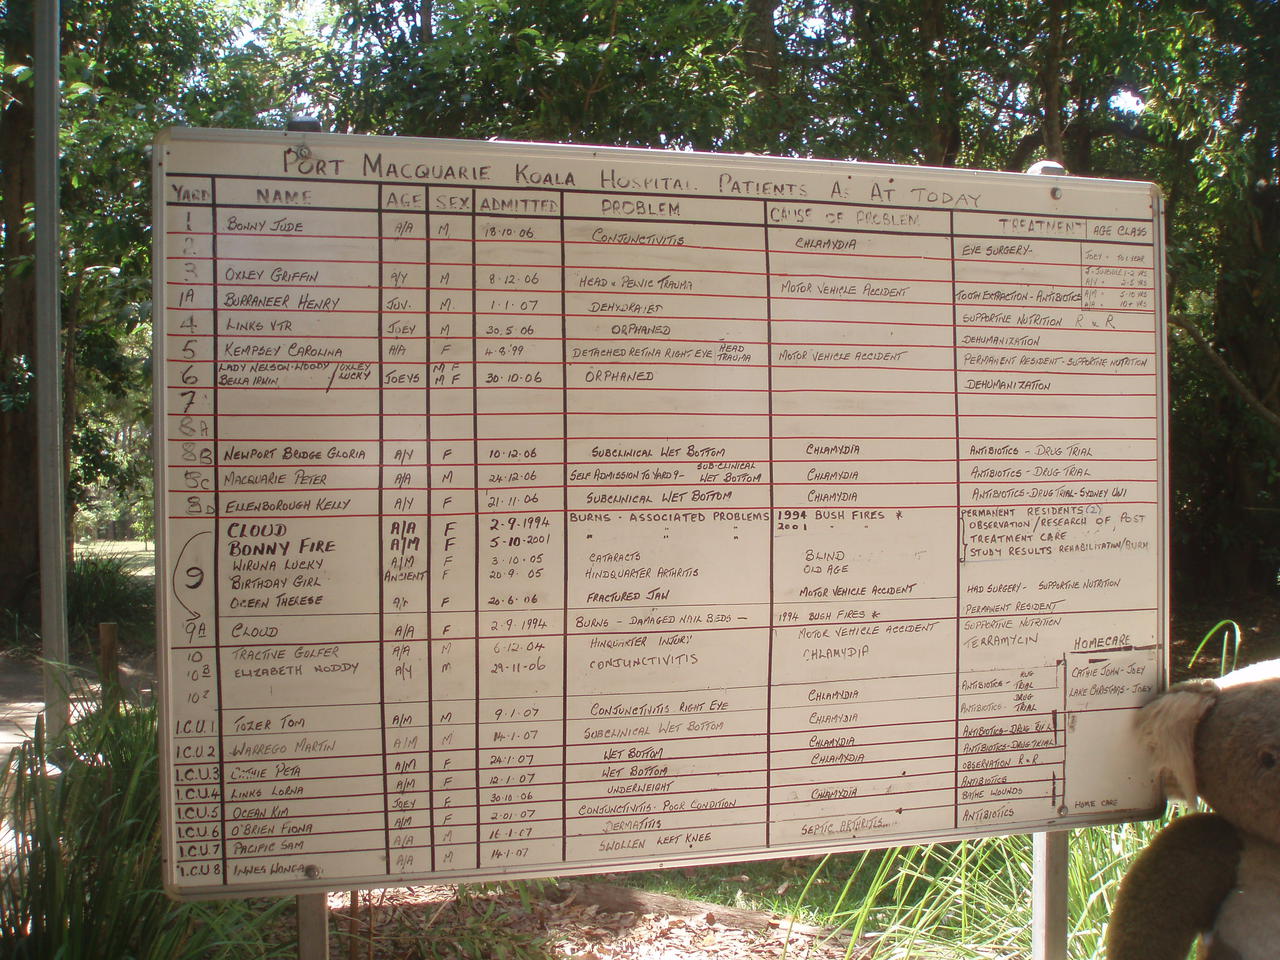 PORT MACQUARIE KOALA HOSPITAL PATIENTS AS AT TODAY
YARD NAME AGE SEX ADMITTED PROBLEM CAUSE OF PROBLEM TREATMENT AGE CLASS
1 BONNY JUDE A/A M 18.10.06 CONJUNCTIVITIS CHLAMYDIA EYE SURGERY-
2
3 OXLEY GRIFFIN A/Y M 8.12.06 HEAD & PELVIC TRAUMA MOTOR VEHICLE ACCIDENT
1A BURRANEER HENRY JUV. M. 1.1.07 DEHYDRATED TOOTH EXTRACTION - ANTIBIOTICS
4 LINKS VTR JOEY M 30.5.06 ORPHANED SUPPORTIVE NUTRITION R & R
DEHUMANIZATION
5 KEMPSEY CAROLINA A/A F 4.8.'99 DETACHED RETINA RIGHT EYE HEAD TRAUMA MOTOR VEHICLE ACCIDENT PERMANENT RESIDENT - SUPPORTIVE NUTRITION
6 LADY NELSON-WOODY / OXLEY LUCKY M F
BELLA IRWIN JOEYS M F 30.10.06 ORPHANED DEHUMANIZATION
7
8A
8B NEWPORT BRIDGE GLORIA A/Y F 10.12.06 SUBCLINICAL WET BOTTOM CHLAMYDIA ANTIBIOTICS - DRUG TRIAL
8C MACQUARIE PETER A/A M 24.12.06 SELF ADMISSION TO YARD 9 - SUB-CLINICAL WET BOTTOM CHLAMYDIA ANTIBIOTICS - DRUG TRIAL
8D ELLENBOROUGH KELLY A/Y F 21.11.06 SUBCLINICAL WET BOTTOM CHLAMYDIA ANTIBIOTICS - DRUG TRIAL - SYDNEY UNI
9 CLOUD A/A F 2.9.1994 BURNS - ASSOCIATED PROBLEMS 1994 BUSH FIRES * PERMANENT RESIDENTS (2)
BONNY FIRE A/M F 5.10.2001 " " " 2001 " " OBSERVATION/RESEARCH OF, POST
TREATMENT CARE
STUDY RESULTS REHABILITATION/BURN
WIRUNA LUCKY A/M F 3.10.05 CATARACTS BLIND
BIRTHDAY GIRL ANCIENT F 20.9.05 HINDQUARTER ARTHRITIS OLD AGE
OCEAN THERESE F 20.6.06 FRACTURED JAW MOTOR VEHICLE ACCIDENT HAD SURGERY - SUPPORTIVE NUTRITION
9A CLOUD A/A F 2.9.1994 BURNS - DAMAGED NAIL BEDS - 1994 BUSH FIRES * PERMANENT RESIDENT
10 TRACTIVE GOLFER A/A M 6.12.04 HINQUARTER INJURY MOTOR VEHICLE ACCIDENT SUPPORTIVE NUTRITION
10B ELIZABETH NODDY A/Y M 29-11-06 CONJUNCTIVITIS CHLAMYDIA TERRAMYCIN
10
I.C.U.1 TOZER TOM A/M M 9.1.07 CONJUNCTIVITIS RIGHT EYE CHLAMYDIA ANTIBIOTICS - DRUG TRIAL
I.C.U.2 WARREGO MARTIN A/M M 14.1.07 SUBCLINICAL WET BOTTOM CHLAMYDIA ANTIBIOTICS - DRUG TRIAL
I.C.U.3 CATHIE PETA A/M F 24.1.07 WET BOTTOM CHLAMYDIA ANTIBIOTICS - DRUG TRIAL
I.C.U.4 LINKS LORNA A/M F 12.1.07 WET BOTTOM CHLAMYDIA ANTIBIOTICS - DRUG TRIAL
I.C.U.5 OCEAN KIM JOEY F 30.10.06 UNDERWEIGHT OBSERVATION R & R
I.C.U.6 O'BRIEN FIONA A/M F 2.01.07 CONJUNCTIVITIS - POOR CONDITION CHLAMYDIA ANTIBIOTICS
I.C.U.7 PACIFIC SAM A/A M 16.1.07 DERMATITIS BATHE WOUNDS
I.C.U 8 INNES A/A M 14.1.07 SWOLLEN LEFT KNEE SEPTIC ARTHRITIS ANTIBIOTICS
JOEY - TO 1 YEAR
J - JUVENILE 1-2 YRS
A/Y - 2-5 YRS
A/M - 5-10 YRS
A/A - 10+ YRS
HOMECARE
CATHIE JOHN - JOEY
LAKE CHRISTMAS - JOEY
HOME CARE